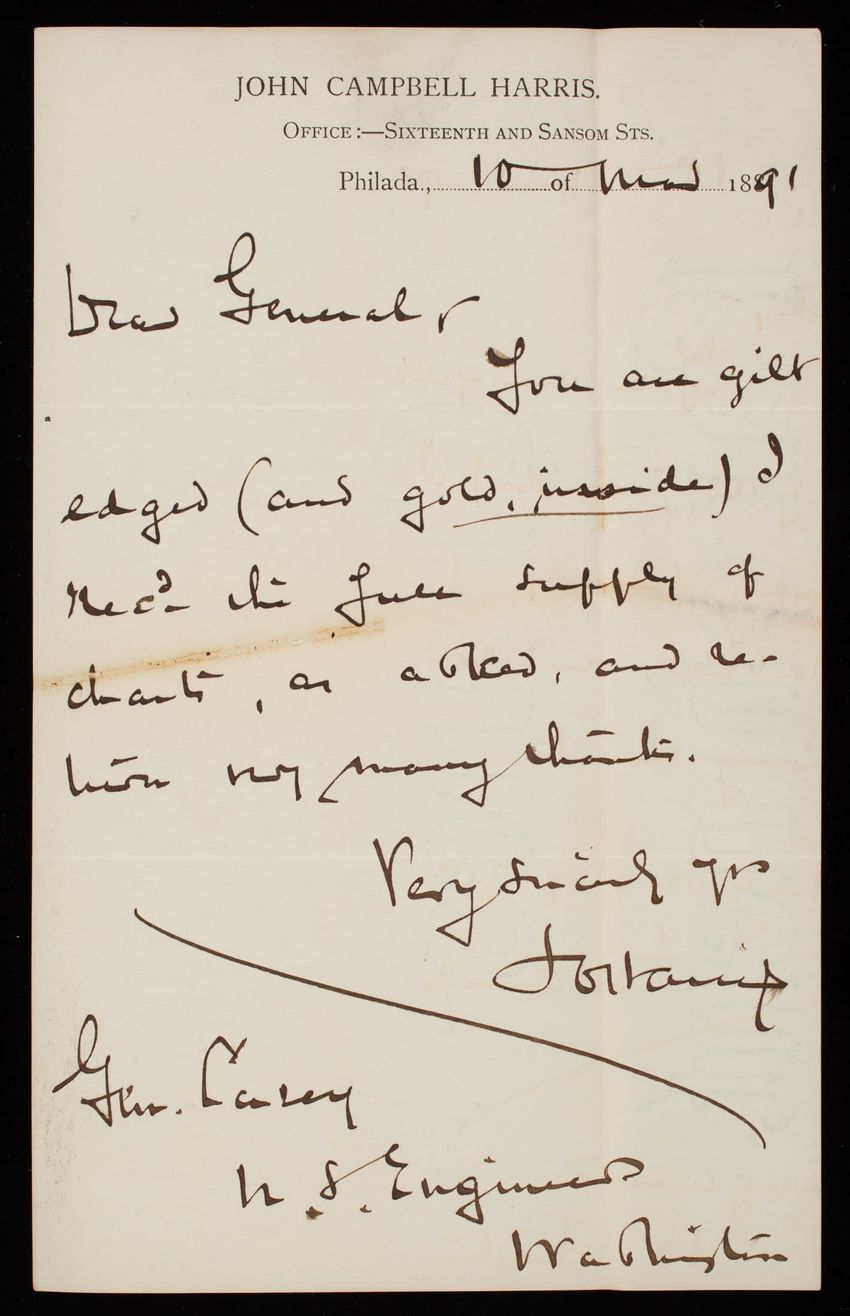 JOHN CAMPBELL HARRIS.
OFFICE:—SIXTEENTH AND SANSOM STS.
Philada., 10 of Mar 1891
Dear General,
You are gilt
edged (and gold, inside) I
rec'd the full supply of
charts, as asked, and re-
turn very many thanks.
Very sincerely yrs
JCHarris
Gen. Casey
U.S. Engineers
Washington